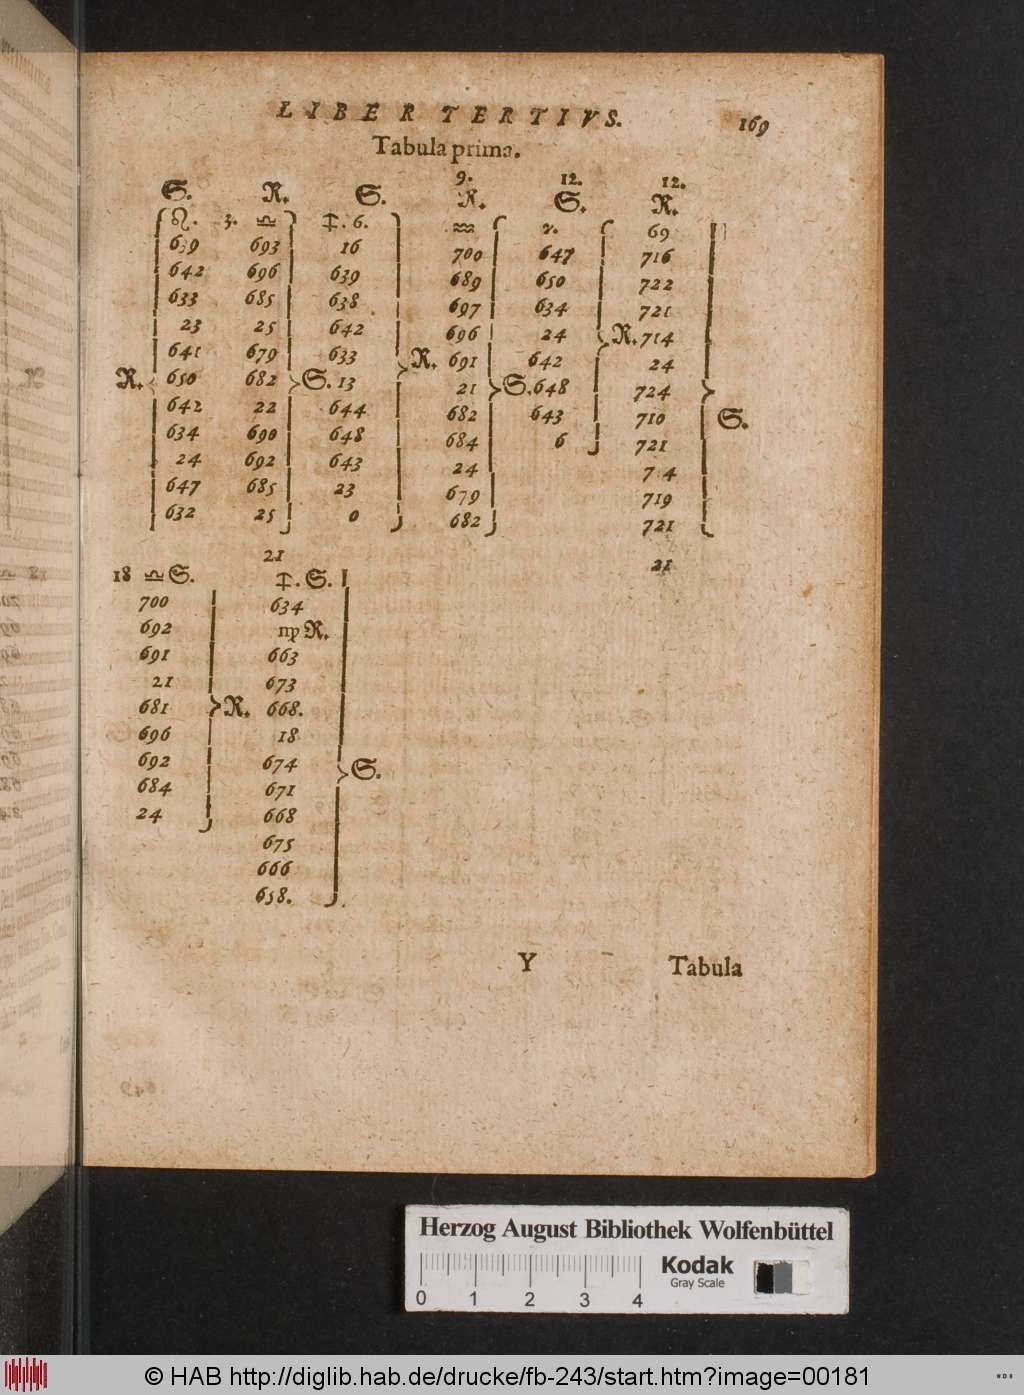 LIBER TERTIVS. 169
Tabula prima.
9. 12. 12.
S. R. S. R. S. R.
♌. 3. ♎ ♐. 6. ♒ ♈. 69
639 693 16 700 647 716
642 696 639 689 650 722
633 685 638 697 634 721
23 25 642 696 24 R. 714
641 679 633 R. 691 642 24
R. 650 682 S. 13 21 S. 648 724
642 22 644 682 643 710 S.
634 690 648 684 6 721
24 692 643 24 7 4
647 685 23 679 719
632 25 0 682 721
21 21
18 ♎ S. ♐. S.
700 634
692 ♍ R.
691 663
21 673
681 R. 668.
696 18
692 674 S.
684 671
24 668
675
666
658.
Y Tabula
Herzog August Bibliothek Wolfenbüttel
Kodak
Gray Scale
0 1 2 3 4
© HAB http://diglib.hab.de/drucke/fb-243/start.htm?image=00181